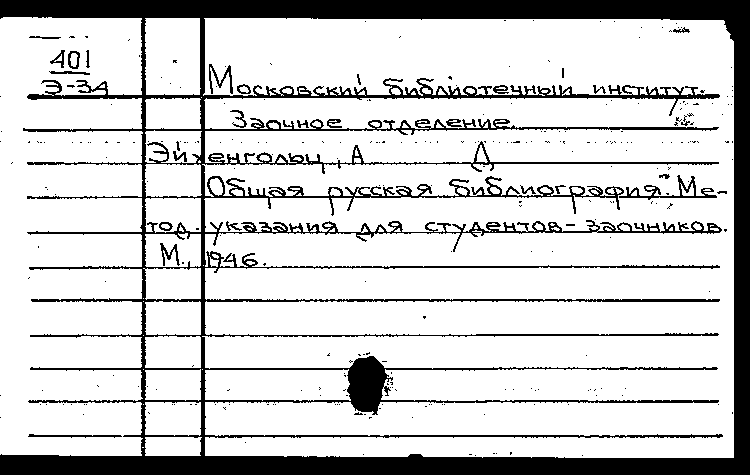 401
Э-34
Московский библиотечный институт.
Заочное отделение.
Эйхенгольц, А Д
Общая русская библиография. Ме-
тод. указания для студентов-заочников.
М., 1946.